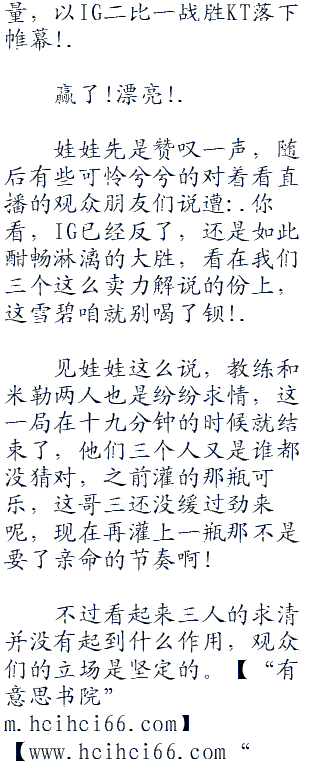 量，以IG二比一战胜KT落下
帷幕!.
赢了!漂亮!.
娃娃先是赞叹一声，随
后有些可怜兮兮的对着看直
播的观众朋友们说遭:.你
看，IG已经反了，还是如此
酣畅淋漓的大胜，看在我们
三个这么卖力解说的份上，
这雪碧咱就别喝了钡!.
见娃娃这么说，教练和
米勒两人也是纷纷求情，这
一局在十九分钟的时候就结
束了，他们三个人又是谁都
没猜对，之前灌的那瓶可
乐，这哥三还没缓过劲来
呢，现在再灌上一瓶那不是
要了亲命的节奏啊!
不过看起来三人的求清
并没有起到什么作用，观众
们的立场是坚定的。【“有
意思书院”
m.hcihci66.com】
【www.hcihci66.com“